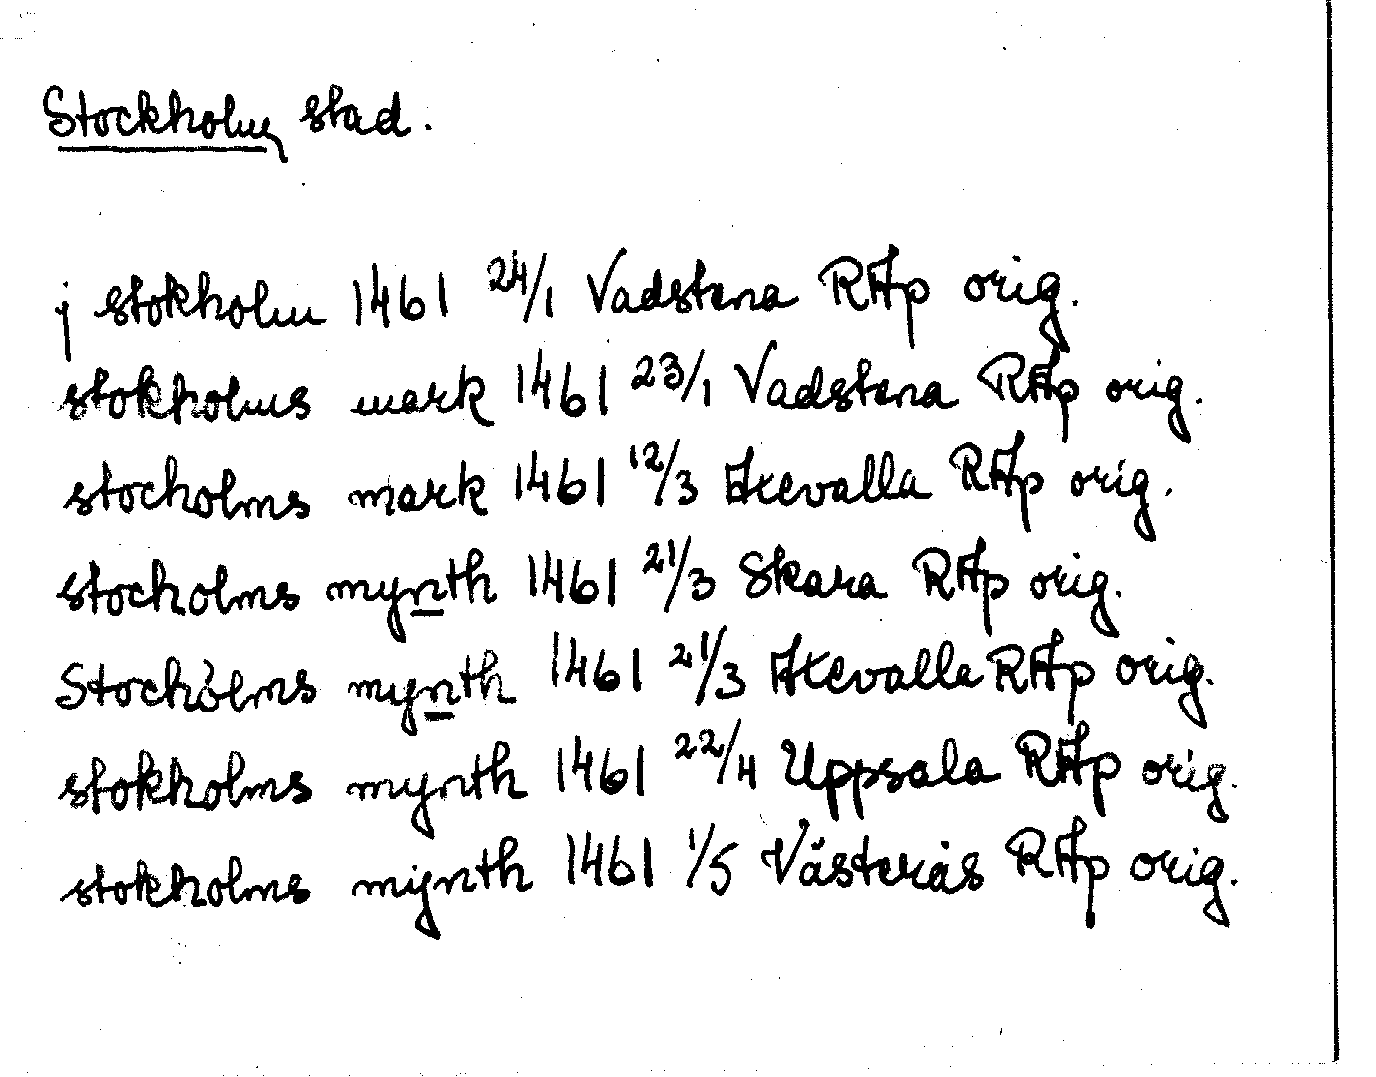 Stockholm stad.
j stokholm 1461 24/1 Vadstena RAp orig.
stokholms mark 1461 23/1 Vadstena RAp orig.
stocholms mark 1461 12/3 Axevalla RAp orig.
stocholms mynth 1461 21/3 Skara RAp orig.
Stocholms mynth 1461 21/3 Axevalla RAp orig.
stokholms mynth 1461 22/4 Uppsala RAp orig.
stokholms mijnth 1461 1/5 Västerås RAp orig.